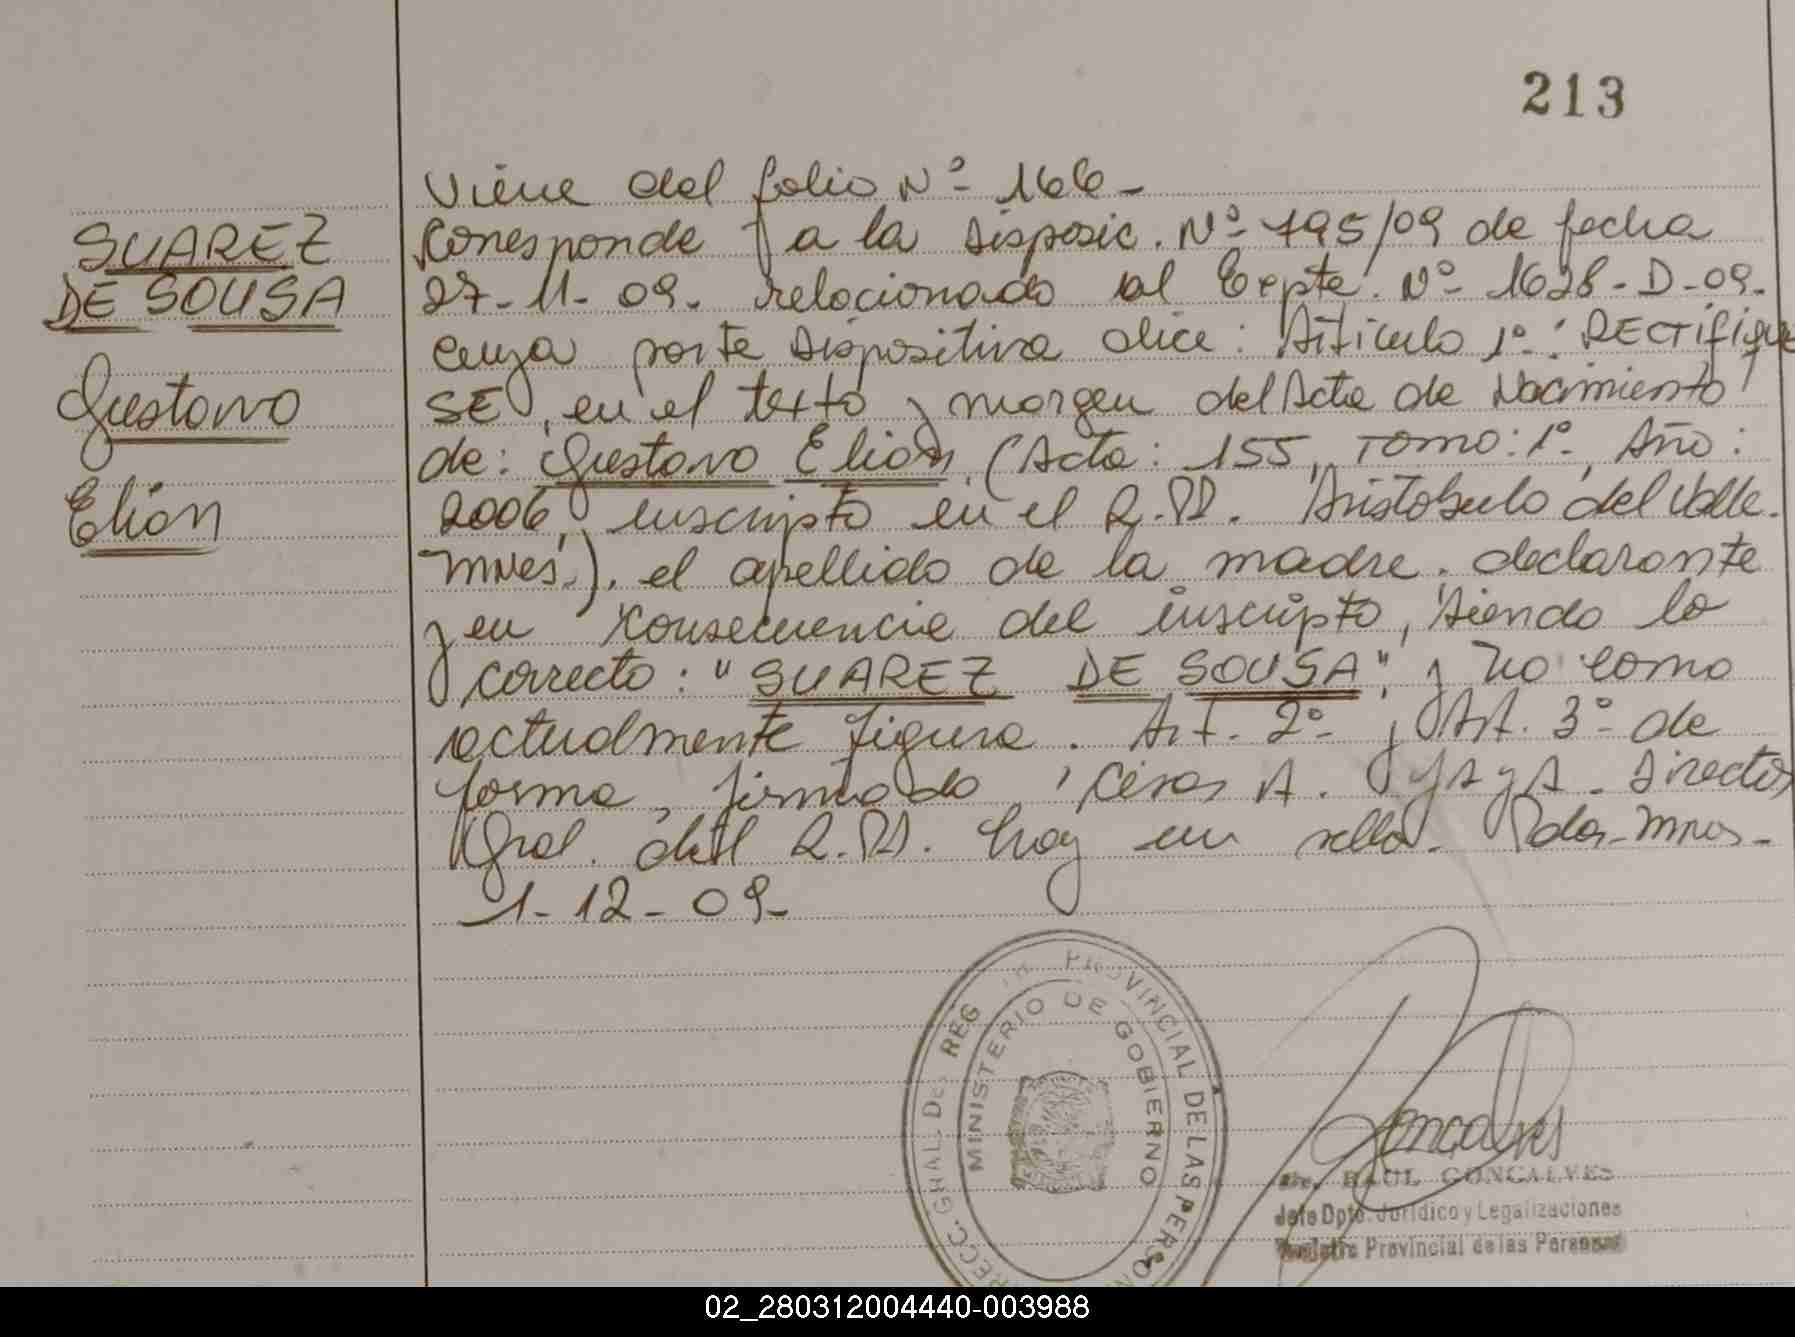 213
Viene del folio Nº 166-
SUAREZ
DE SOUSA
Gustavo
Elián
Corresponde a la Disposic. Nº 795/09 de fecha
27-11-09. relacionado al Expte. Nº 1628-D-09.
cuya parte Dispositiva dice: Artículo 1º: RECTIFIQUE
SE, en el texto y margen del Acta de Nacimiento
de: Gustavo Elián (Acta: 155, Tomo: 1º, Año:
2006, inscripto en el R.P. Aristóbulo del Valle.
Mnes.). el apellido de la madre. declarante
y en consecuencia del inscripto, siendo lo
correcto: "SUAREZ DE SOUSA", y no como
actualmente figura. Art. 2º y Art. 3º de
forma, firmado César A. Director
Gral. del R.P. hay un sello. Pdas-Mnes-
1-12-09-
DIRECC. GRAL. DEL REG PROVINCIAL DE LAS PERSON
MINISTERIO DE GOBIERNO
Goncalves
RAUL GONCALVES
Jefe Dpto. Jurídico y Legalizaciones
Registro Provincial de las Personas
02_280312004440-003988